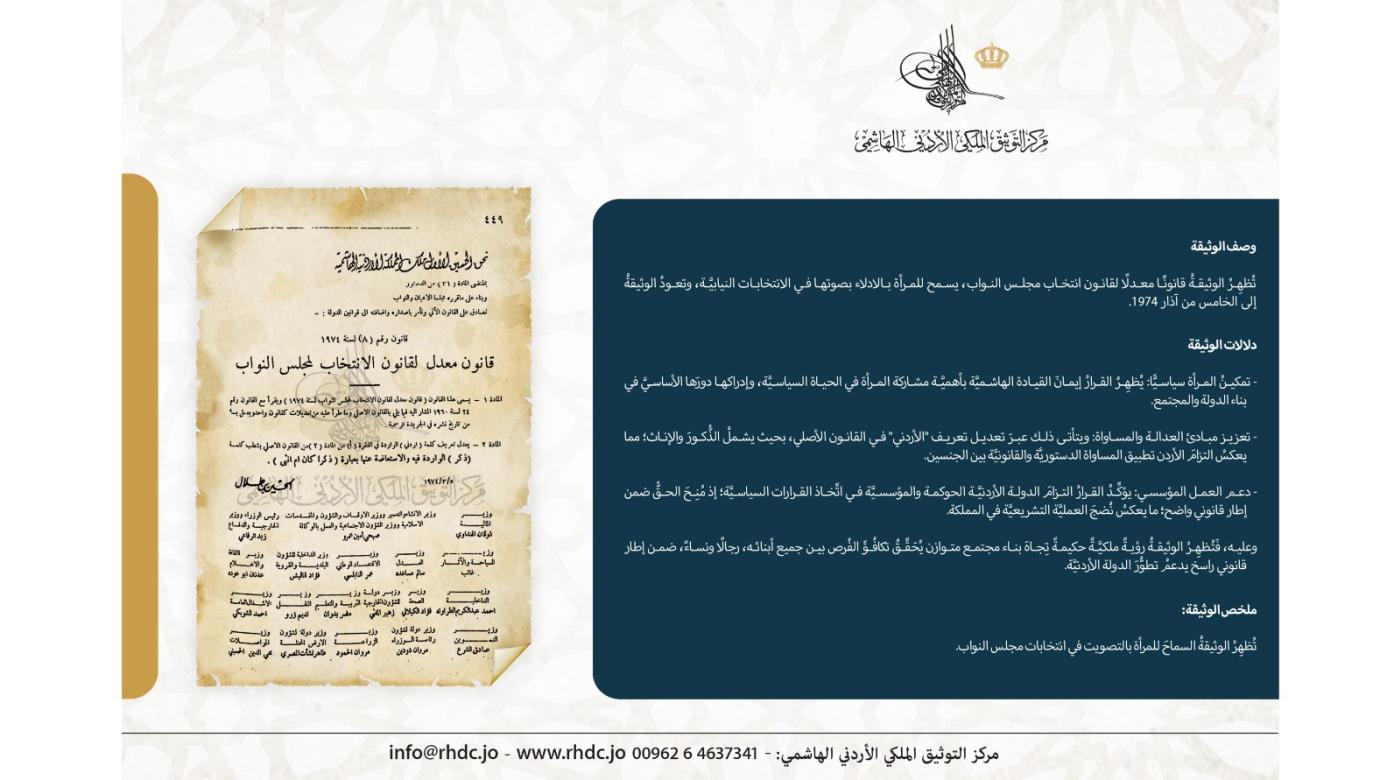 مركز التوثيق الملكي الأردني الهاشمي
وصف الوثيقة
تُظهِرُ الوثيقةُ قانونًا معدلًا لقانون انتخاب مجلس النواب، يسمح للمرأة بالادلاء بصوتها في الانتخابات النيابيَّة، وتعودُ الوثيقةُ
إلى الخامس من آذار 1974.
دلالات الوثيقة
- تمكينُ المرأة سياسيًّا: يُظهِرُ القرارُ إيمانَ القيادة الهاشميَّة بأهميَّة مشاركة المرأة في الحياة السياسيَّة، وإدراكها دورَها الأساسيَّ في
بناء الدولة والمجتمع.
- تعزيز مبادئ العدالة والمساواة: ويتأتى ذلك عبرَ تعديل تعريف "الأردني" في القانون الأصلي، بحيث يشملُ الذُّكورَ والإناث؛ مما
يعكسُ التزامَ الأردن تطبيق المساواة الدستوريَّة والقانونيَّة بين الجنسين.
- دعم العمل المؤسسي: يؤكِّدُ القرارُ التزامَ الدولة الأردنيَّة الحوكمة والمؤسسيَّة في اتِّخاذ القرارات السياسيَّة؛ إذ مُنِحَ الحقُّ ضمن
إطار قانوني واضح؛ ما يعكسُ نُضجَ العمليَّة التشريعيَّة في المملكة.
وعليه، فتُظهِرُ الوثيقةُ رؤيةً ملكيَّةً حكيمةً تِجاهَ بناء مجتمع متوازن يُحَقِّقُ تكافؤَ الفُرص بين جميع أبنائه، رجالًا ونساءً، ضمن إطار
قانوني راسخ يدعمُ تطوُّرَ الدولة الأردنيَّة.
ملخص الوثيقة:
تُظهِرُ الوثيقةُ السماحَ للمرأة بالتصويت في انتخابات مجلس النواب.
٤٤٩
نحن الحسين الأول ملك المملكة الأردنية الهاشمية
بمقتضى المادة (٣١) من الدستور
وبناء على ماقرره مجلسا الاعيان والنواب
نصادق على القانون الآتي ونأمر باصداره واضافته الى قوانين الدولة : –
قانون رقم (٨) لسنة ١٩٧٤
قانون معدل لقانون الانتخاب لمجلس النواب
المادة ١ – يسمى هذا القانون ( قانون معدل لقانون الانتخاب لمجلس النواب لسنة ١٩٧٤ ) ويقرأ مع القانون رقم
٢٤ لسنة ١٩٦٠ المشار اليه فيما يلي بالقانون الاصلي وما طرأ عليه من تعديلات كقانون واحد ويعمل به
من تاريخ نشره في الجريدة الرسمية
المادة ٢ – يعدل تعريف كلمة ( اردني ) الواردة في الفقرة ( أ ) من المادة ( ٢ ) من القانون الاصلي بشطب كلمة
( ذكر ) الواردة فيه والاستعاضة عنها بعبارة ( ذكرا كان ام انثى ) .
١٩٧٤/٣/٥
الحسين بن طلال
مركز التوثيق الملكي الأردني الهاشمي: - 00962 6 4637341 www.rhdc.jo - info@rhdc.jo